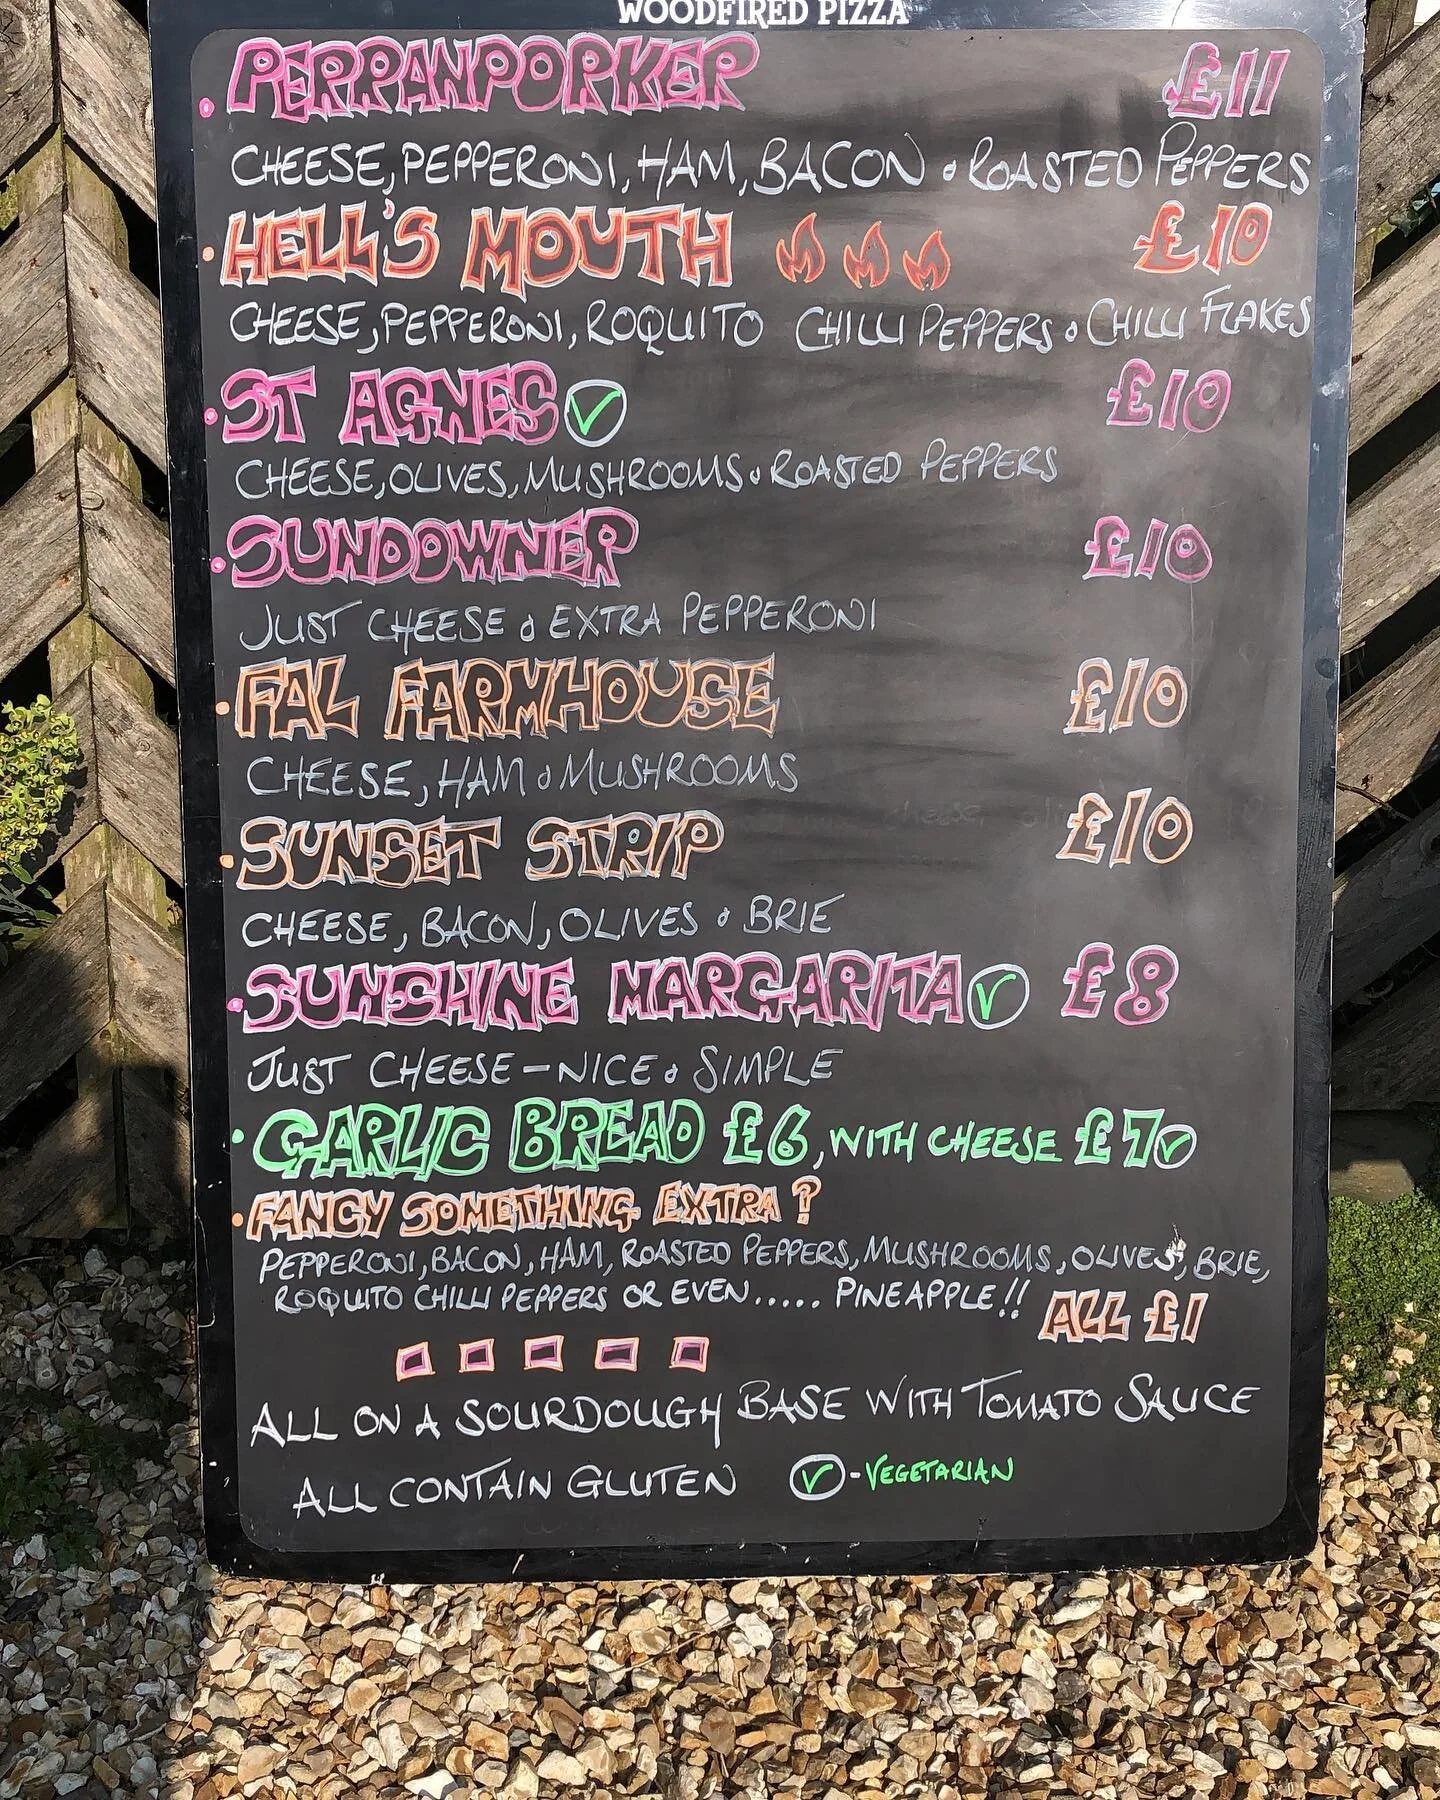 WOODFIRED PIZZA
PERRANPORKER £11
CHEESE, PEPPERONI, HAM, BACON & ROASTED PEPPERS
HELL'S MOUTH £10
CHEESE, PEPPERONI, ROQUITO CHILLI PEPPERS & CHILLI FLAKES
ST AGNES V £10
CHEESE, OLIVES, MUSHROOMS & ROASTED PEPPERS
SUNDOWNER £10
JUST CHEESE & EXTRA PEPPERONI
FAL FARMHOUSE £10
CHEESE, HAM & MUSHROOMS
SUNSET STRIP £10
CHEESE, BACON, OLIVES & BRIE
SUNSHINE MARGARITA V £8
JUST CHEESE - NICE & SIMPLE
GARLIC BREAD £6, WITH CHEESE £7 V
FANCY SOMETHING EXTRA?
PEPPERONI, BACON, HAM, ROASTED PEPPERS, MUSHROOMS, OLIVES, BRIE,
ROQUITO CHILLI PEPPERS OR EVEN..... PINEAPPLE!! ALL £1
ALL ON A SOURDOUGH BASE WITH TOMATO SAUCE
ALL CONTAIN GLUTEN V - VEGETARIAN